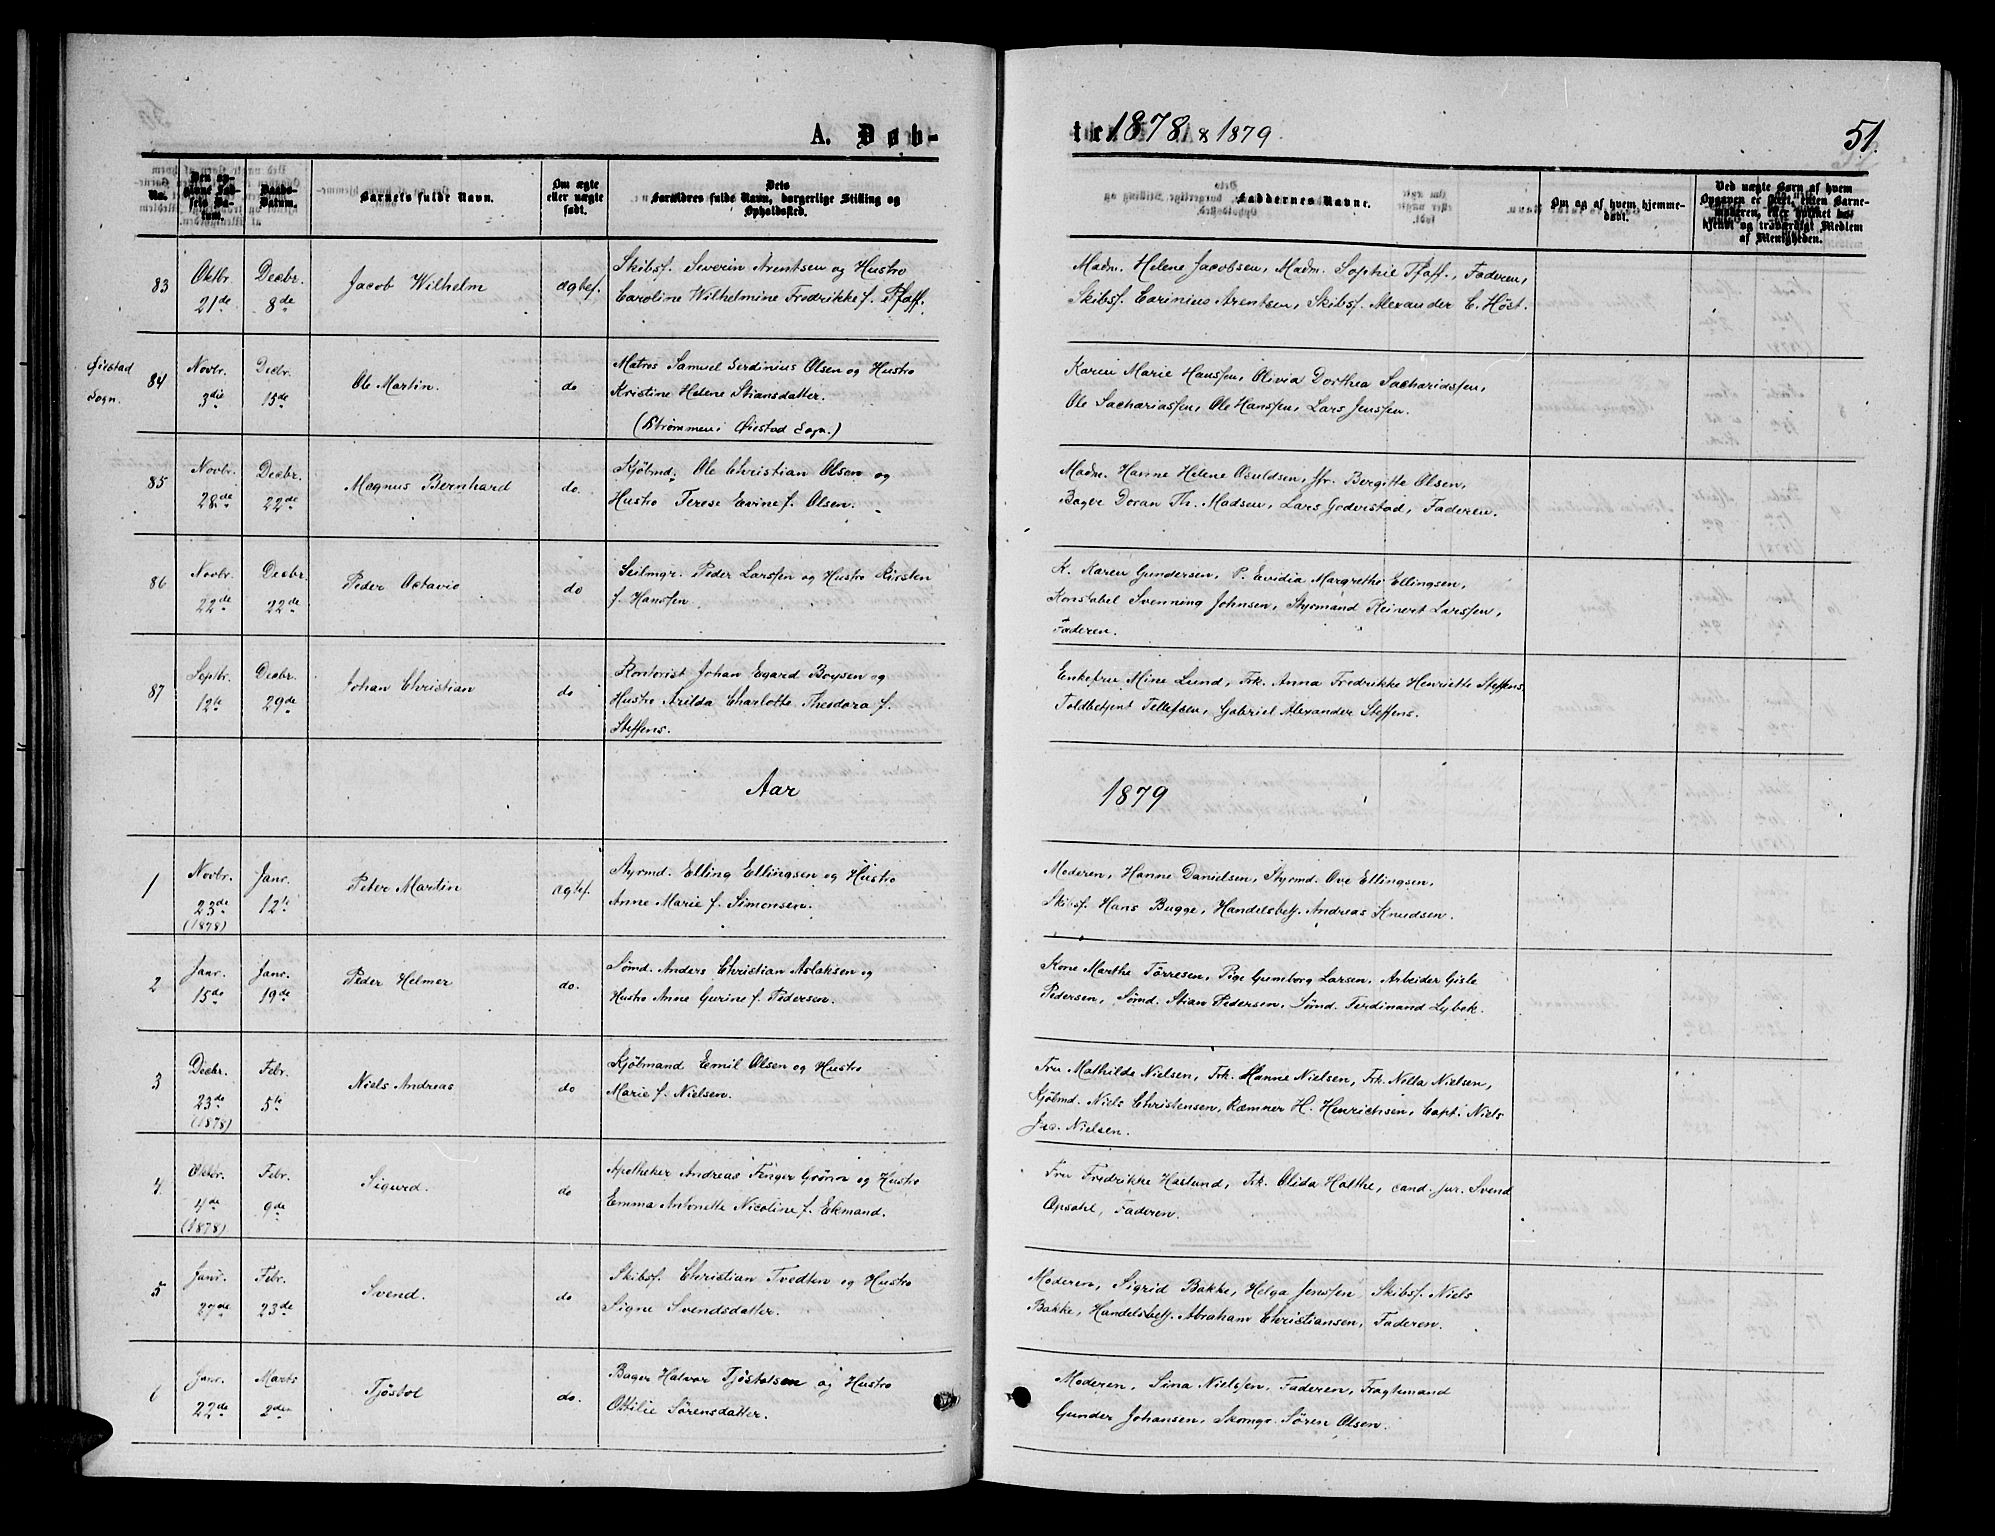 A. Døb-
te 1878 & 1879.
51
No.
Den opgivne Fødsels Datum.
Daabs-Datum.
Barnets fulde Navn.
Om ægte eller uægte født.
Dets Forældres fulde Navn, borgerlige Stilling og Opholdssted.
Faddernes Navne.
Om og af hvem hjemmedøbt.
Ved uægte Børn af hvem Opgaven er skeet, enten Barnemoderen, eller hvilket bekjendt og troværdigt Medlem af Menigheden.
83 Oktbr. 21de Decbr. 8de Jacob Wilhelm ægtef. Skibsf. Severin Arentsen og Hustro
Caroline Wilhelmine Fredrikke f. Pfaff.
Madm. Helene Jacobsen, Madm. Sophie Pfaff, Faderen,
Skibsf. Carinius Arentsen, Skibsf. Alexander C. Høst.
Øiestad Sogn.
84 Novbr. 3die Decbr. 15de Ole Martin. do Matros Samuel Serdinius Olsen og Hustro
Kristine Helene Stiansdatter.
(Strømmen i Øiestad Sogn.)
Karen Marie Hanssen, Olivia Dorthea Sachariassen,
Ole Sachariassen, Ole Hanssen, Lars Jenssen.
85 Novbr. 28de Decbr. 22de Magnus Bernhard do. Kjøbmd. Ole Christian Olsen og
Hustro Terese Evine f. Olsen.
Madm. Hanne Helene Osuldsen, Jfr. Bergitte Olsen,
Bager Doran Th. Madsen, Lars Goderstad, Faderen.
86 Novbr. 22de Decbr. 22de Peder Octavio do Seilmgr. Peder Larssen og Hustro Kirsten
f. Hanssen
K. Karen Gundersen, P. Evidia Margrethe Ellingsen,
Konstabel Svenning Johnsen, Styrmand Reinert Larssen,
Faderen.
87 Septbr. 12te Decbr. 29de Johan Christian do Kontorist Johan Egard Boysen og
Hustro Arilda Charlotte Theodora f.
Steffens.
Enkefru Mine Lund, Frk. Anna Fredrikke Henriette Steffens,
Toldbetjent Tellefsen, Gabriel Alexander Steffens.
Aar 1879
1 Novbr. 23de (1878) Janr. 12te Peter Martin ægtef. Styrmd. Elling Ellingsen og Hustro
Anne Marie f. Simonsen.
Moderen, Hanne Danielsen, Styrmd. Ove Ellingsen,
Skibsf. Hans Bugge, Handelsbetj. Andreas Knudsen.
2 Janr. 15de Janr. 19de Peder Helmer do. Sømd. Anders Christian Aslaksen og
Hustro Anne Gurine f. Pedersen.
Kone Marthe Tørresen, Pige Gunborg Larsen, Arbeider Gisle
Pedersen, Sømd. Stian Pedersen, Sømd. Ferdinand Lybek.
3 Decbr. 23de (1878) Febr. 5te Niels Andreas do Kjøbmand Emil Olsen og Hustro
Marie f. Nielsen.
Fru Mathilde Nielsen, Frk. Hanne Nielsen, Frk. Nella Nielsen,
Kjøbmd. Niels Christensen, Kæmner H. Henrichsen, Capt. Niels
Jac. Nielsen.
4 Oktbr. 4de (1878) Febr. 9de Sigurd. do Apotheker Andreas Finger Grønn og Hustro
Emma Antonette Nicoline f. Ekmand.
Fru Fredrikke Haslund, Frk. Olida Holthe, cand. jur. Svend
Opsahl, Faderen.
5 Janr. 27de Febr. 23de Svend. do Skibsf. Christian Tvedten og Hustro
Signe Svendsdatter.
Moderen, Sigrid Bakke, Helga Jenssen Skibsf. Niels
Bakke, Handelsbetj. Abraham Christiansen, Faderen.
6 Janr. 22de Marts 2den Tjøstol do. Bager Halvor Tjøstolsen og Hustro
Ottilie Sørensdatter.
Moderen, Sina Nielssen, Faderen, Fragtemand
Gunder Johansen, Skomgr. Søren Olsen.